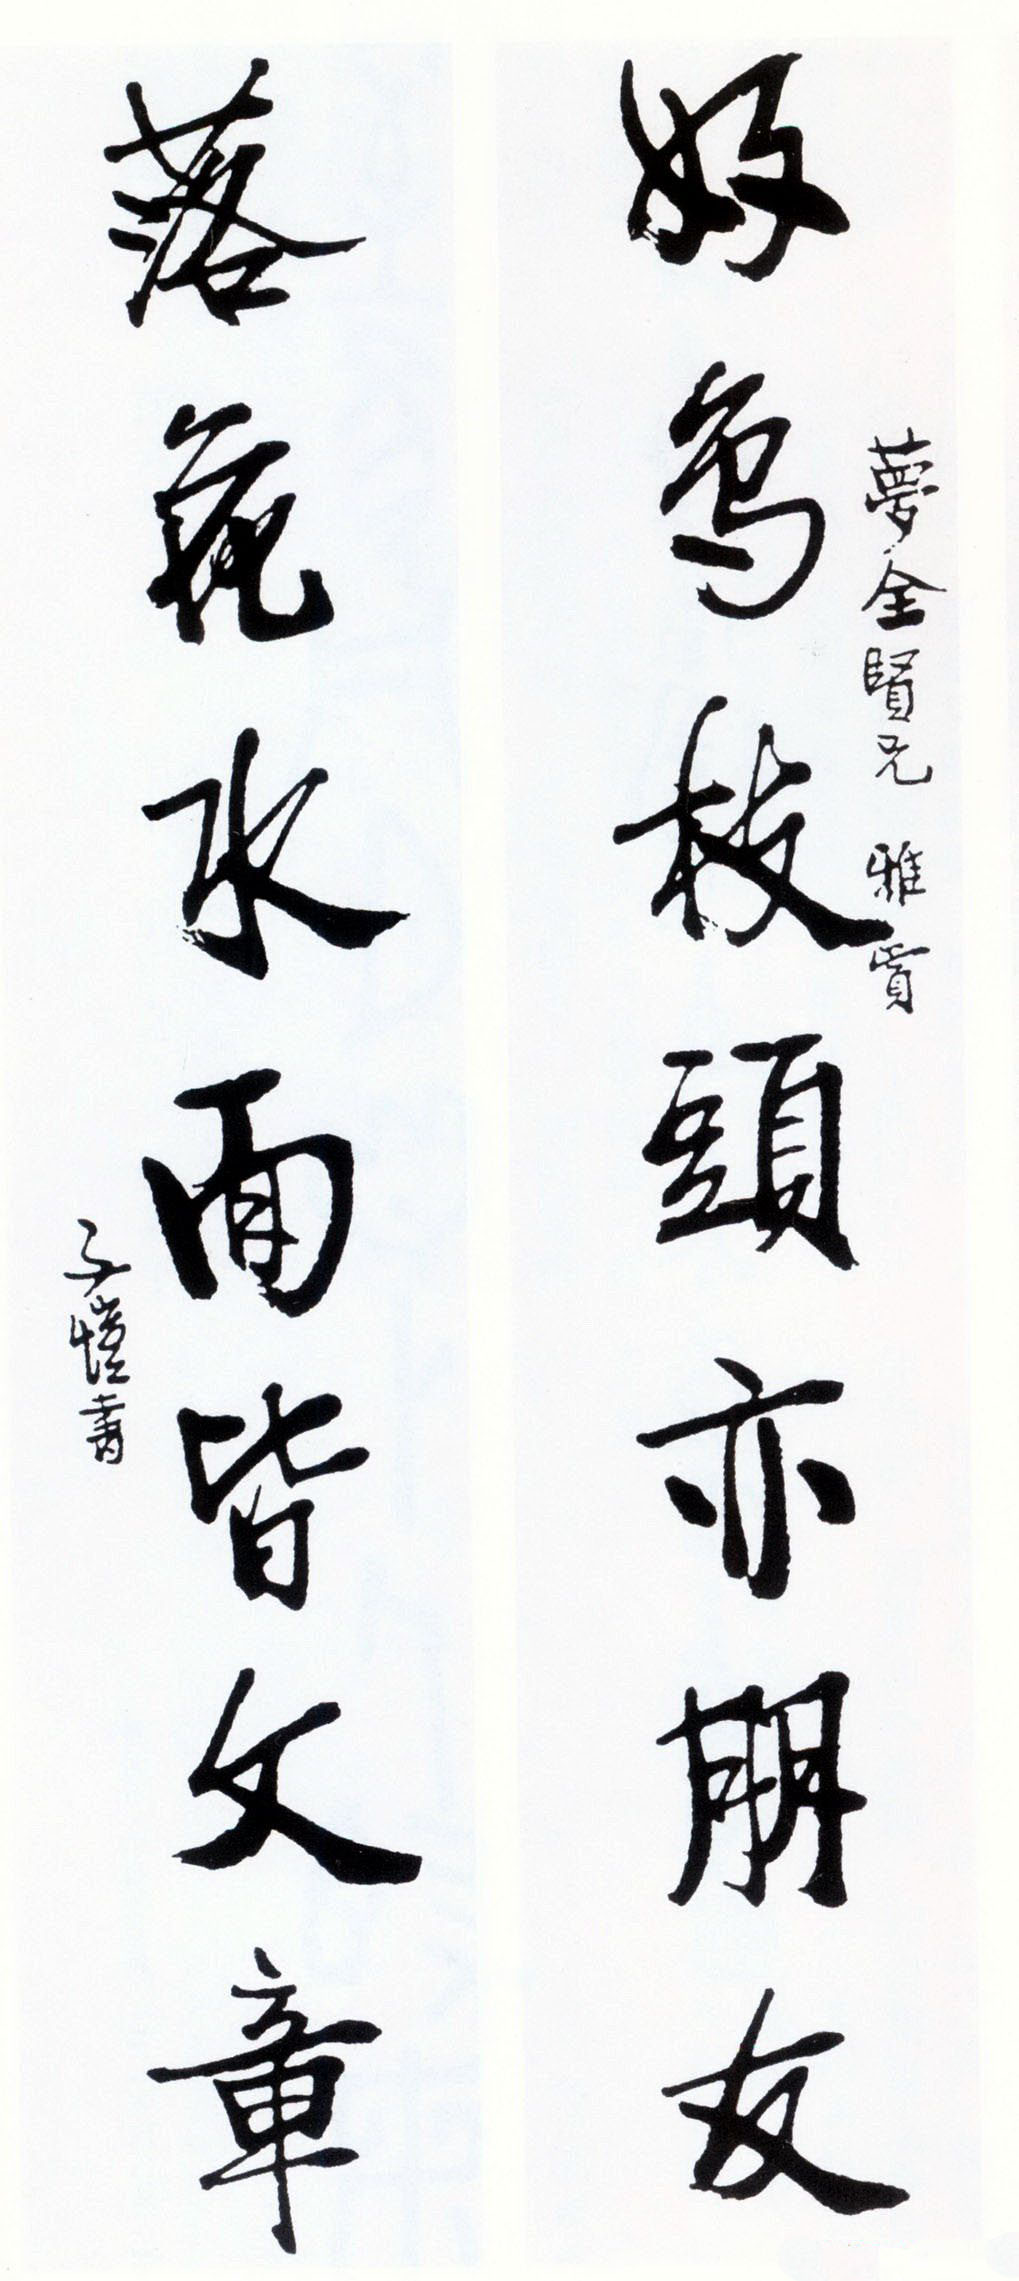 夢全賢兄 雅賞
好鳥枝頭亦朋友
落花水面皆文章
子愷書